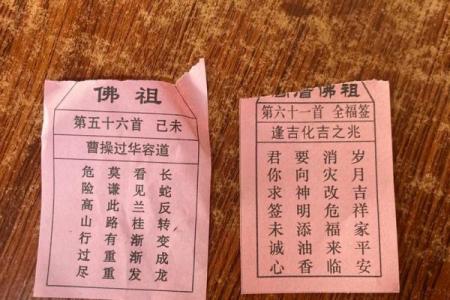 佛祖
第五十六首 己未
曹操过华容道
危险高山行过尽
莫谦此路有重重
看见兰桂渐渐发
长蛇反转变成龙
佛祖
第六十一首 全福签
逢吉化吉之兆
君你求签未诚心
要向神明添油香
消灾改危福来临
岁月吉祥家平安